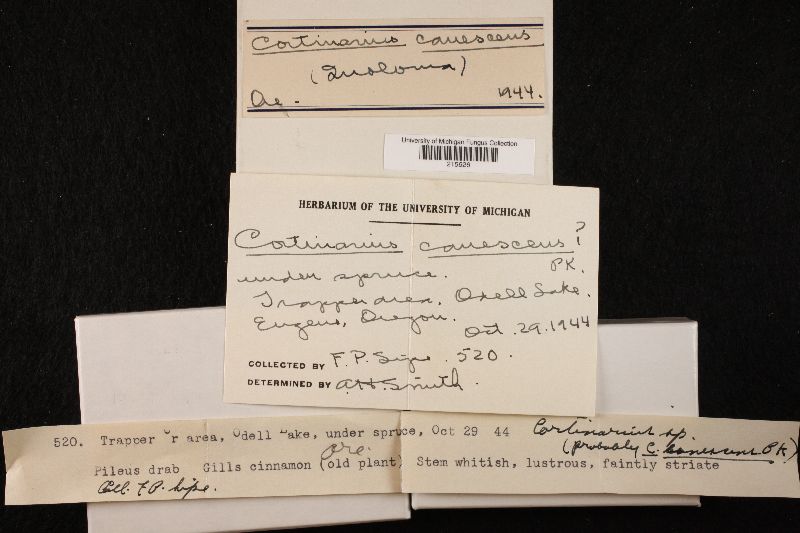 Cortinarius canescens
(Inoloma)
Ore. 1944.
University of Michigan Fungus Collection
HERBARIUM OF THE UNIVERSITY OF MICHIGAN
Cortinarius canescens?
PK.
under spruce.
Trapper area, Odell Lake.
Eugene, Oregon. Oct. 29. 1944
COLLECTED BY F. P. Sipe. 520.
DETERMINED BY A.H. Smith.
520. Trapper Cr area, Odell Lake, under spruce, Oct 29 44 Cortinarius sp.
Ore. (probably C. canescens PK)
Pileus drab Gills cinnamon (old plant) Stem whitish, lustrous, faintly striate
Coll. F. P. Sipe.